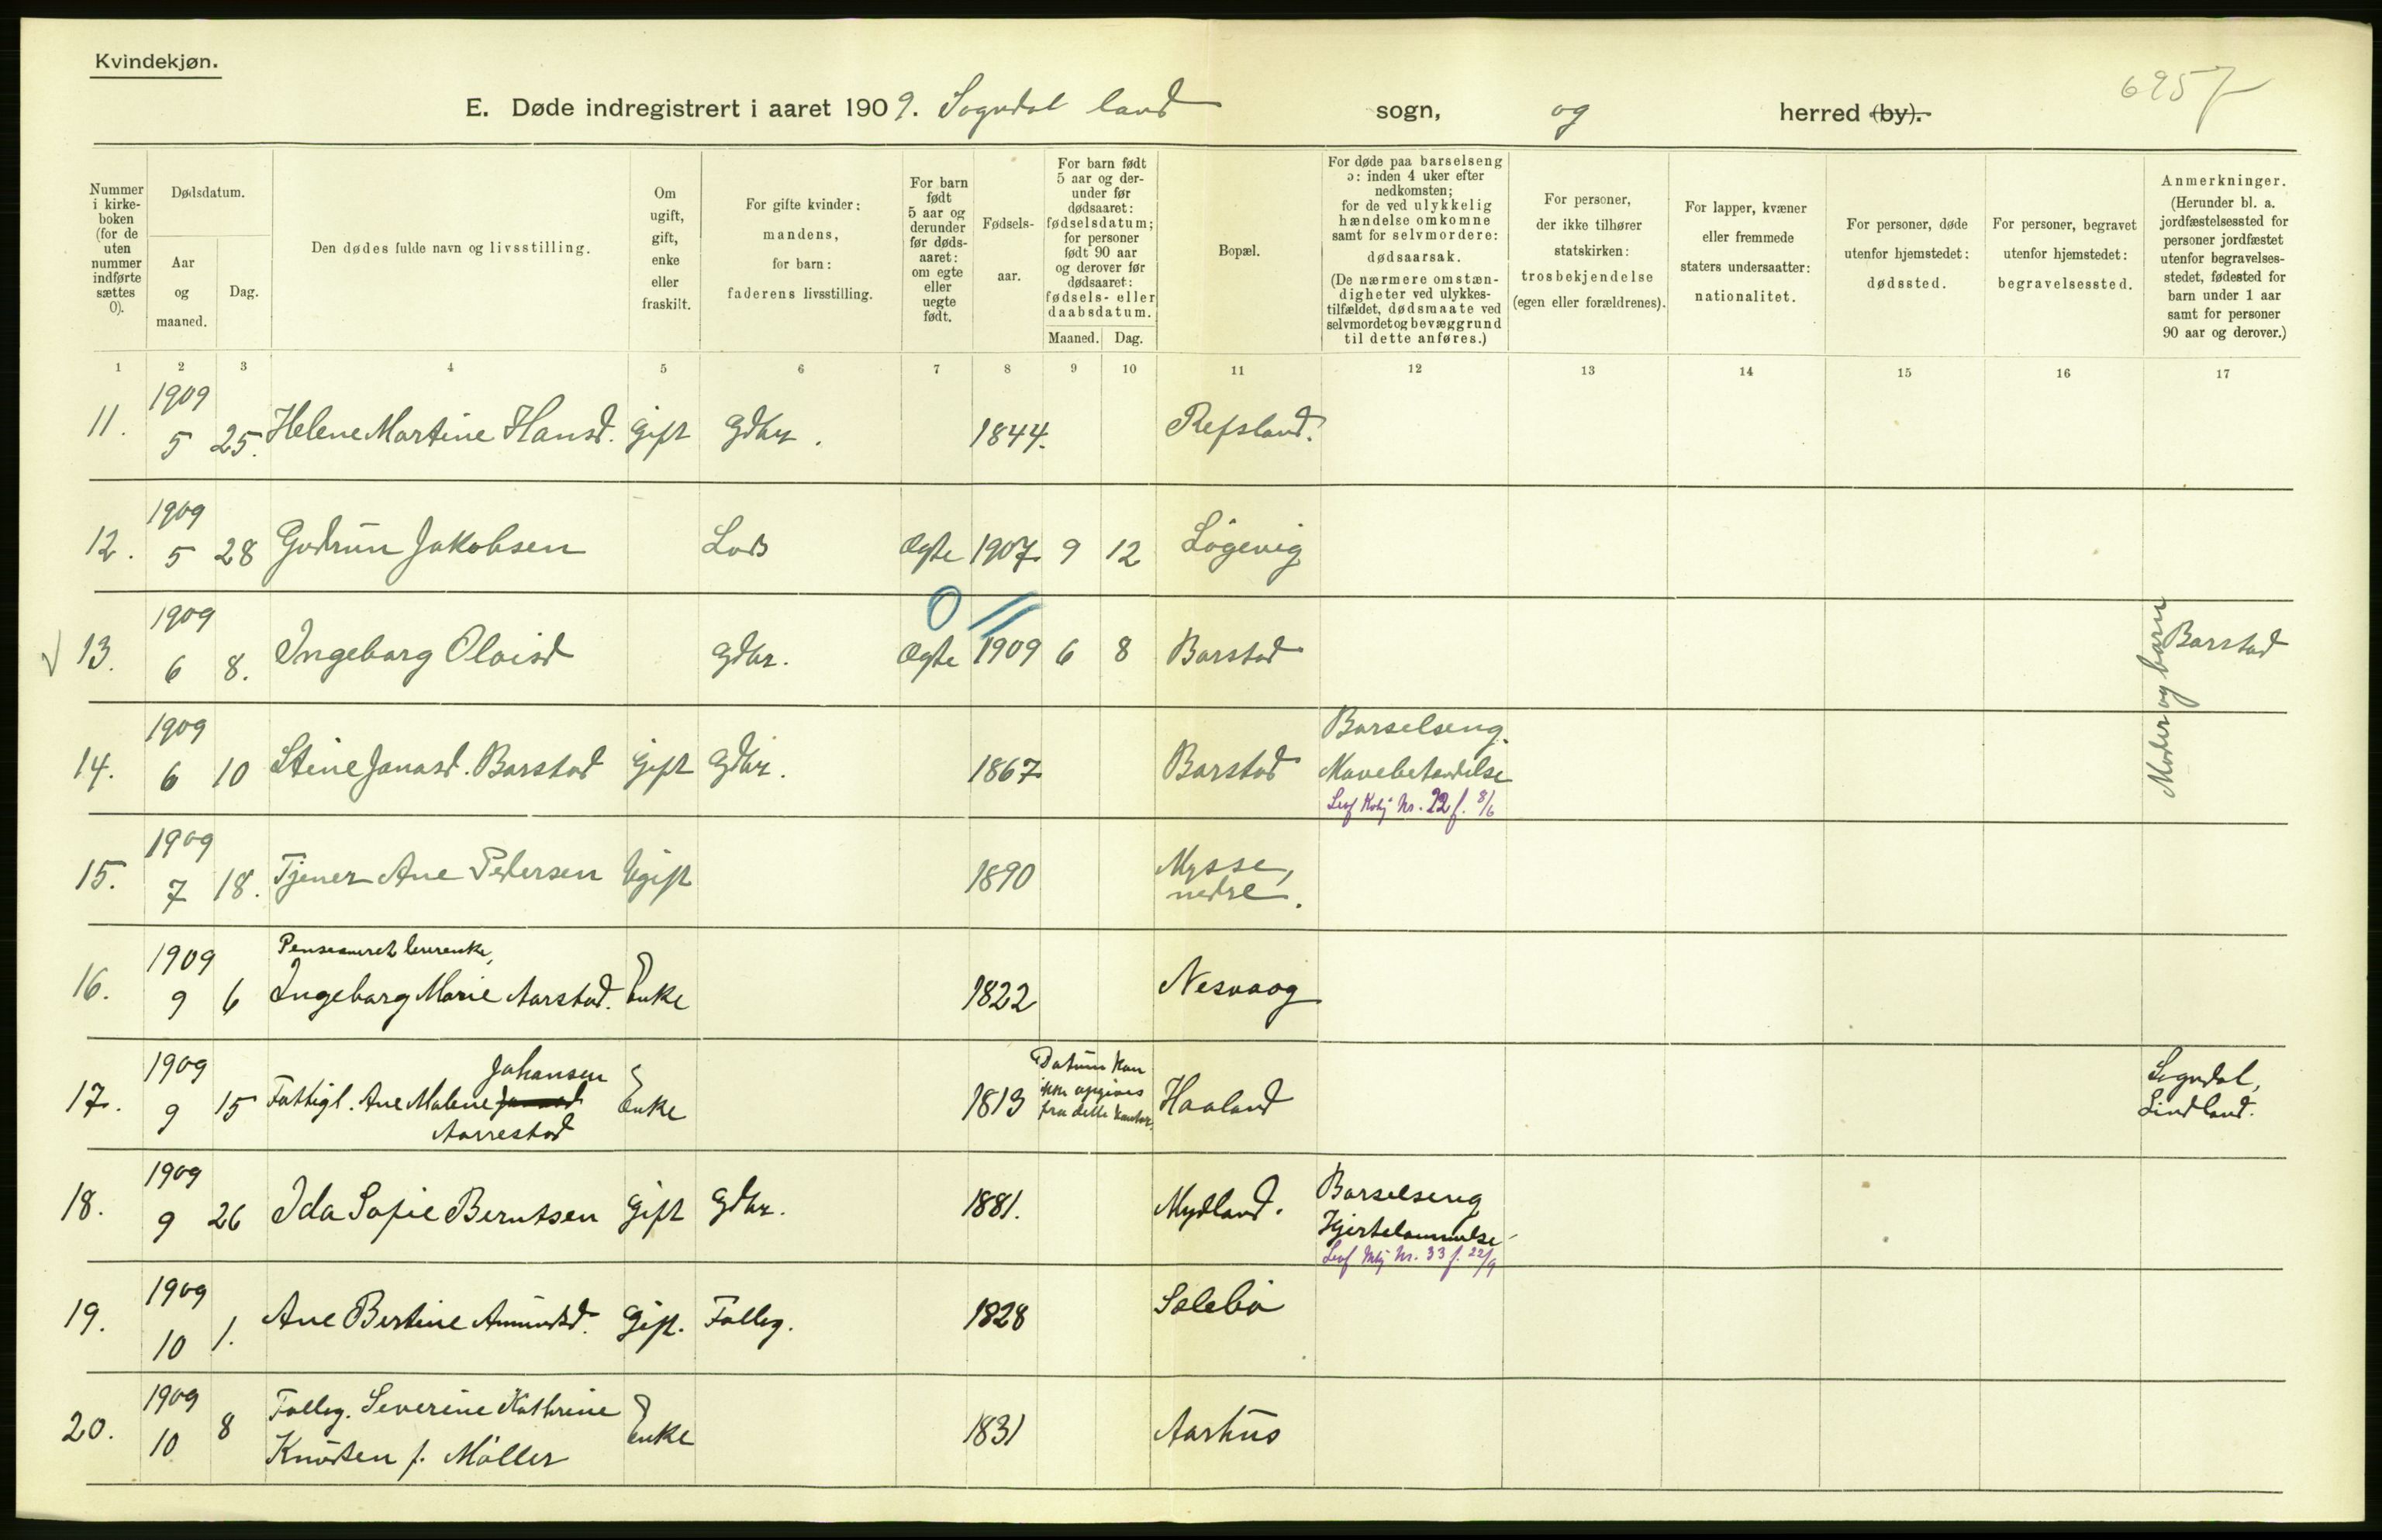 Kvindekjøn.
6957
E. Døde indregistrert i aaret 1909. Sogndal land sogn, og herred (by).
Nummer i kirke-boken (for de uten nummer indførte sættes 0).
Dødsdatum.
Aar og maaned.
Dag.
Den dødes fulde navn og livsstilling.
Om ugift, gift, enke eller fraskilt.
For gifte kvinder: mandens, for barn: faderens livsstilling.
For barn født 5 aar og derunder før døds-aaret: om egte eller uegte født.
Fødsels-aar.
For barn født 5 aar og der-under før dødsaaret: fødselsdatum; for personer født 90 aar og derover før dødsaaret: fødsels- eller daabsdatum.
Maaned. Dag.
Bopæl.
For døde paa barselseng ɔ: inden 4 uker efter nedkomsten; for de ved ulykkelig hændelse omkomne samt for selvmordere: dødsaarsak. (De nærmere omstæn-digheter ved ulykkes-tilfældet, dødsmaate ved selvmordet og bevæggrund til dette anføres.)
For personer, der ikke tilhører statskirken: trosbekjendelse (egen eller forældrenes).
For lapper, kvæner eller fremmede staters undersaatter: nationalitet.
For personer, døde utenfor hjemstedet: dødssted.
For personer, begravet utenfor hjemstedet: begravelsessted.
Anmerkninger. (Herunder bl. a. jordfæstelsessted for personer jordfæstet utenfor begravelses-stedet, fødested for barn under 1 aar samt for personer 90 aar og derover.)
1 2 3 4 5 6 7 8 9 10 11 12 13 14 15 16 17
11. 1909 5 25. Helene Martine Hansd. gift Gdbr. 1844. Refsland.
12. 1909 5 28 Gudrun Jakobsen Lods Ægte 1907 9 12 Løgevig
0 //
13. 1909 6 8. Ingeborg Olaisd Gdbr. Ægte 1909 6 8 Barstad Barstad
Moder og barn
14. 1909 6 10 Stine Jonasd. Barstad gift Gdbr. 1867 Barstad Barselseng.
Mavebetændelse
Lev. Kvkj Nr. 22 f. 8/6
15. 1909 7 18. Tjener Ane Pedersen Ugift 1890 Mysse,
nedre.
16. 1909 9 6 Pensioneret lærerenke,
Ingeborg Marie Aarstad. Enke 1822 Nesvaag
17. 1909 9 15 Fattigl. Ane Malene Johansen
Aarrestad Enke 1813 Datum kan
ikke opgives
fra dette kontor. Haaland Sogndal,
Lindland.
18. 1909 9 26 Ida Sofie Berntsen gift Gdbr. 1881. Mydland. Barselseng
Hjertelammelse
Lev. Mkj Nr. 33 f. 22/9
19. 1909 10 1. Ane Bertine Amundsd. Gift. Folleg. 1828 Solebø
20. 1909 10 8 Folleg. Severine Kathrine
Knudsen f. Møller Enke 1831 Aarhus